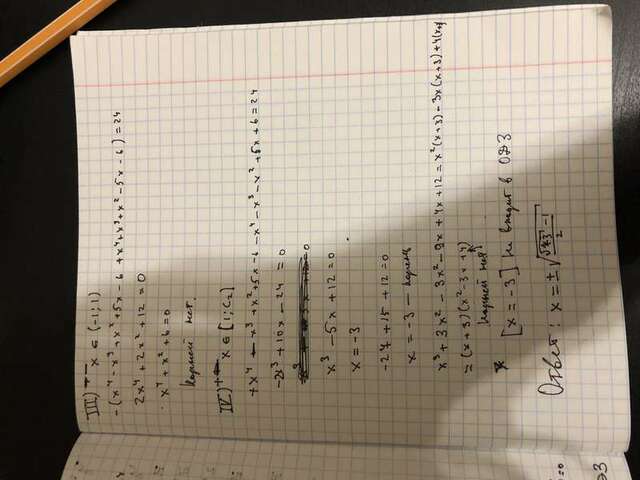 III) -- x ∈ (-1; 1)
-(x⁴ - x³ + x² + 5x - 6 + x⁴ + x³ + x² - 5x - 6) = 24
2x⁴ + 2x² + 12 = 0
x⁴ + x² + 6 = 0
Корней нет.
IV) +- x ∈ [1; C₂]
+x⁴ - x³ + x² + 5x - 6 - x⁴ - x³ - x² + 5x + 6 = 24
-2x³ + 10x - 24 = 0
x³ - 5x + 12 = 0
x = -3
-27 + 15 + 12 = 0
x = -3 — корень
x³ + 3x² - 3x² - 9x + 4x + 12 = x²(x+3) - 3x(x+3) + 4(x+3)
= (x+3)(x² - 3x + 4)
Корней нет
[x = -3] Не входит в ОДЗ
Ответ: x = ± √((√73 - 1)/2)
= 0
ОДЗ